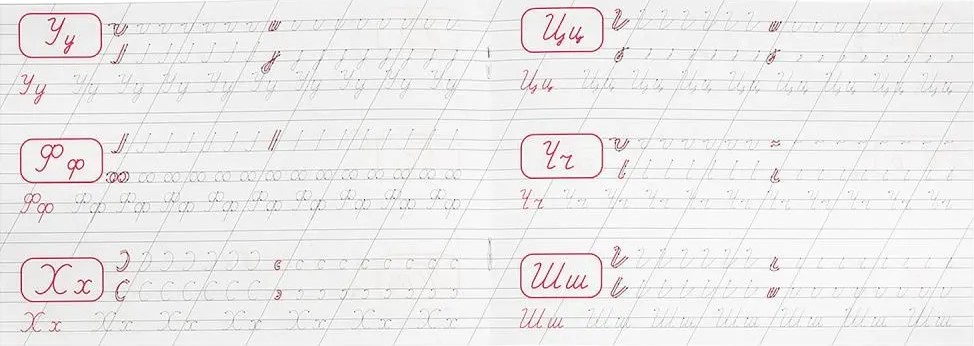 Уу
Уу Уу Уу Уу Уу Уу Уу Уу Уу Уу
Фф
Фф Фф Фф Фф Фф Фф Фф Фф Фф Фф
Хх
Хх Хх Хх Хх Хх Хх Хх
Цц
Цц Цц Цц Цц Цц Цц Цц Цц Цц
Чч
Чч Чч Чч Чч Чч Чч Чч Чч Чч Чч
Шш
Шш Шш Шш Шш Шш Шш Шш